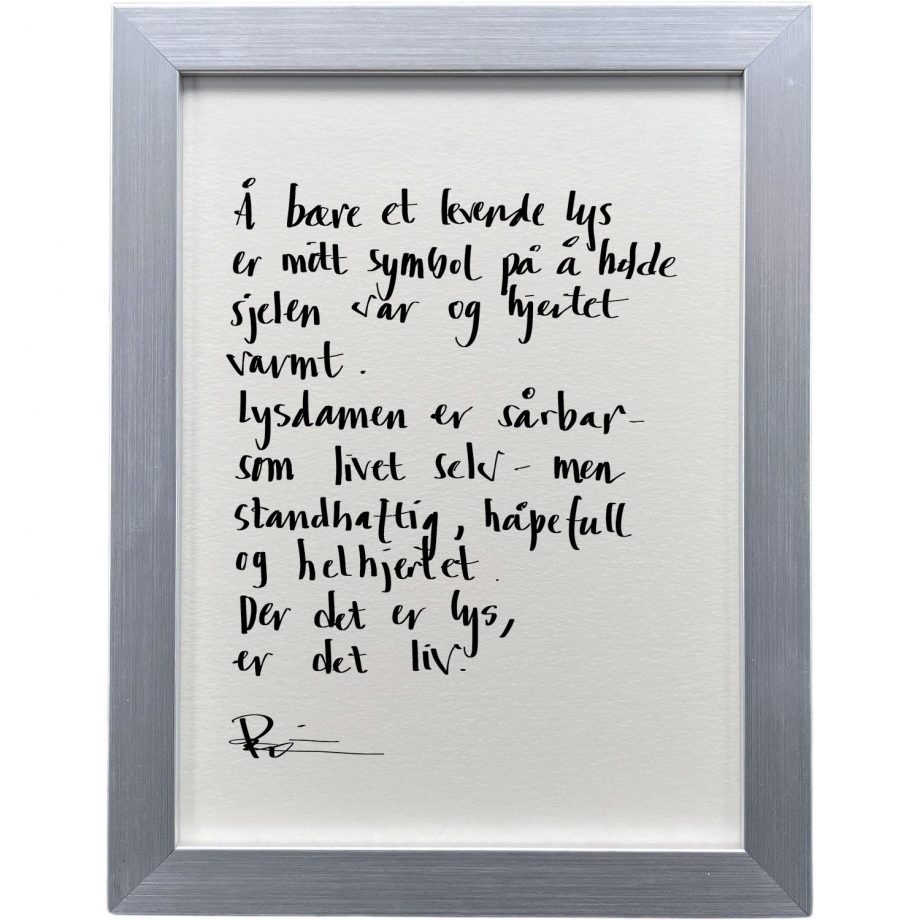 Å bære et levende lys
er mitt symbol på å holde
sjelen vår og hjertet
varmt.
Lysdamen er sårbar-
som livet selv - men
standhaftig, håpefull
og helhjertet.
Der det er lys,
er det liv.